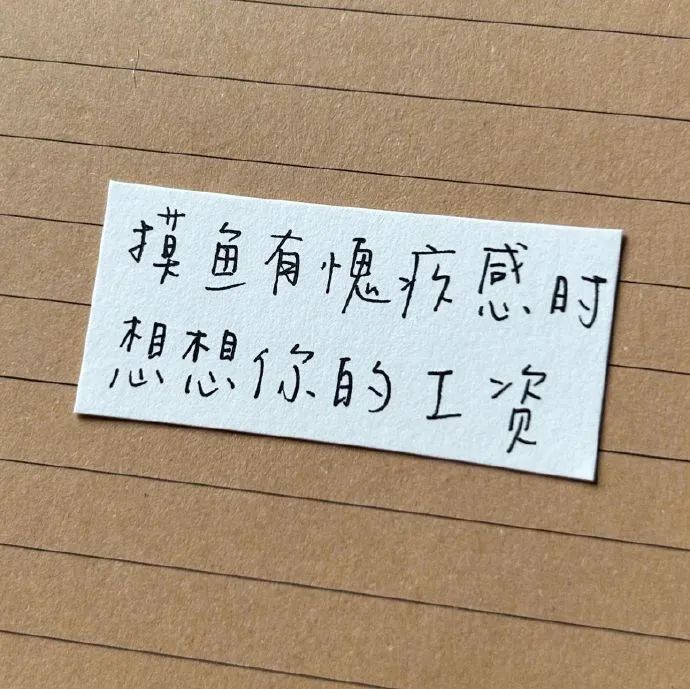 摸鱼有愧疚感时
想想你的工资